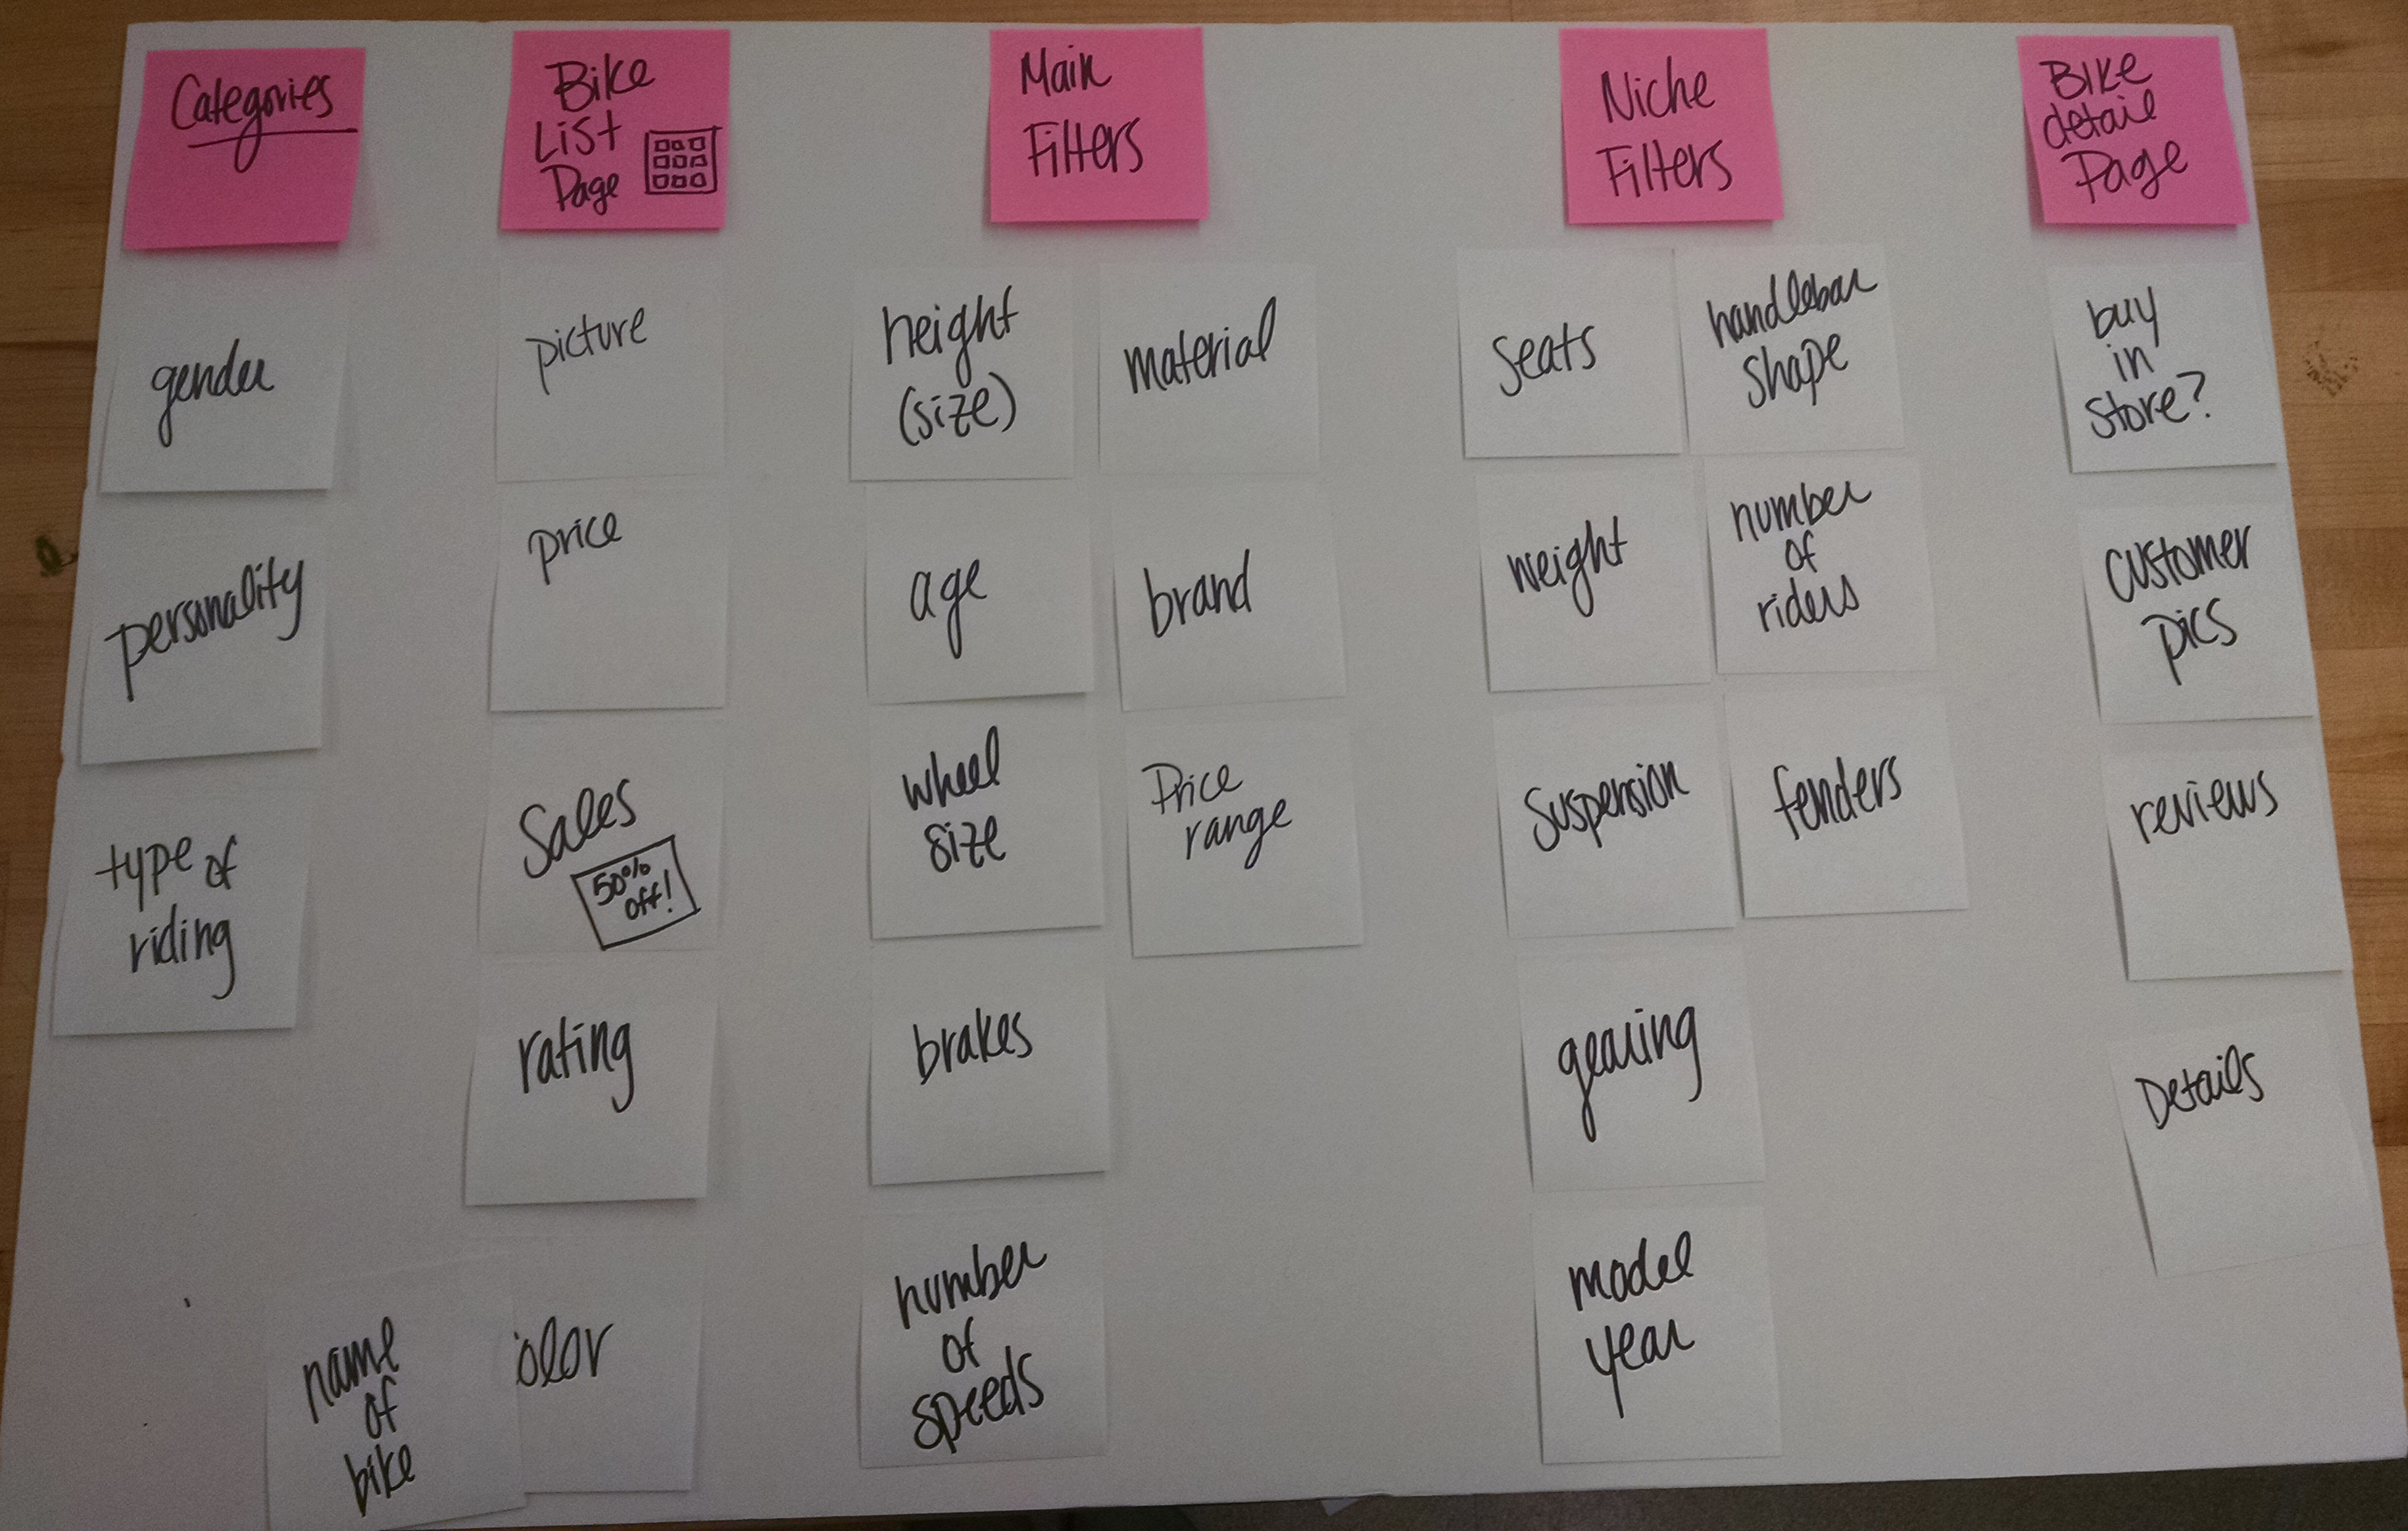 Categories
gender
personality
type of
riding
Bike
List
Page
picture
price
Sales
50%
off!
rating
name
of
bike
olor
Main
Filters
height
(size)
age
wheel
size
brakes
number
of
speeds
material
brand
Price
range
Niche
Filters
Seats
weight
Suspension
gearing
model
year
handlebar
shape
number
of
riders
fenders
Bike
detail
Page
buy
in
store?
customer
pics
reviews
Details